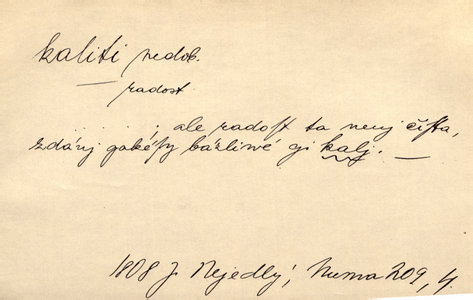 kaliti nedok.
— radost
......; ale radost ta nenj čista,
zdánj gakésy bázliwé gi kalj. —
1808 J. Nejedlý, Numa 209, 4.